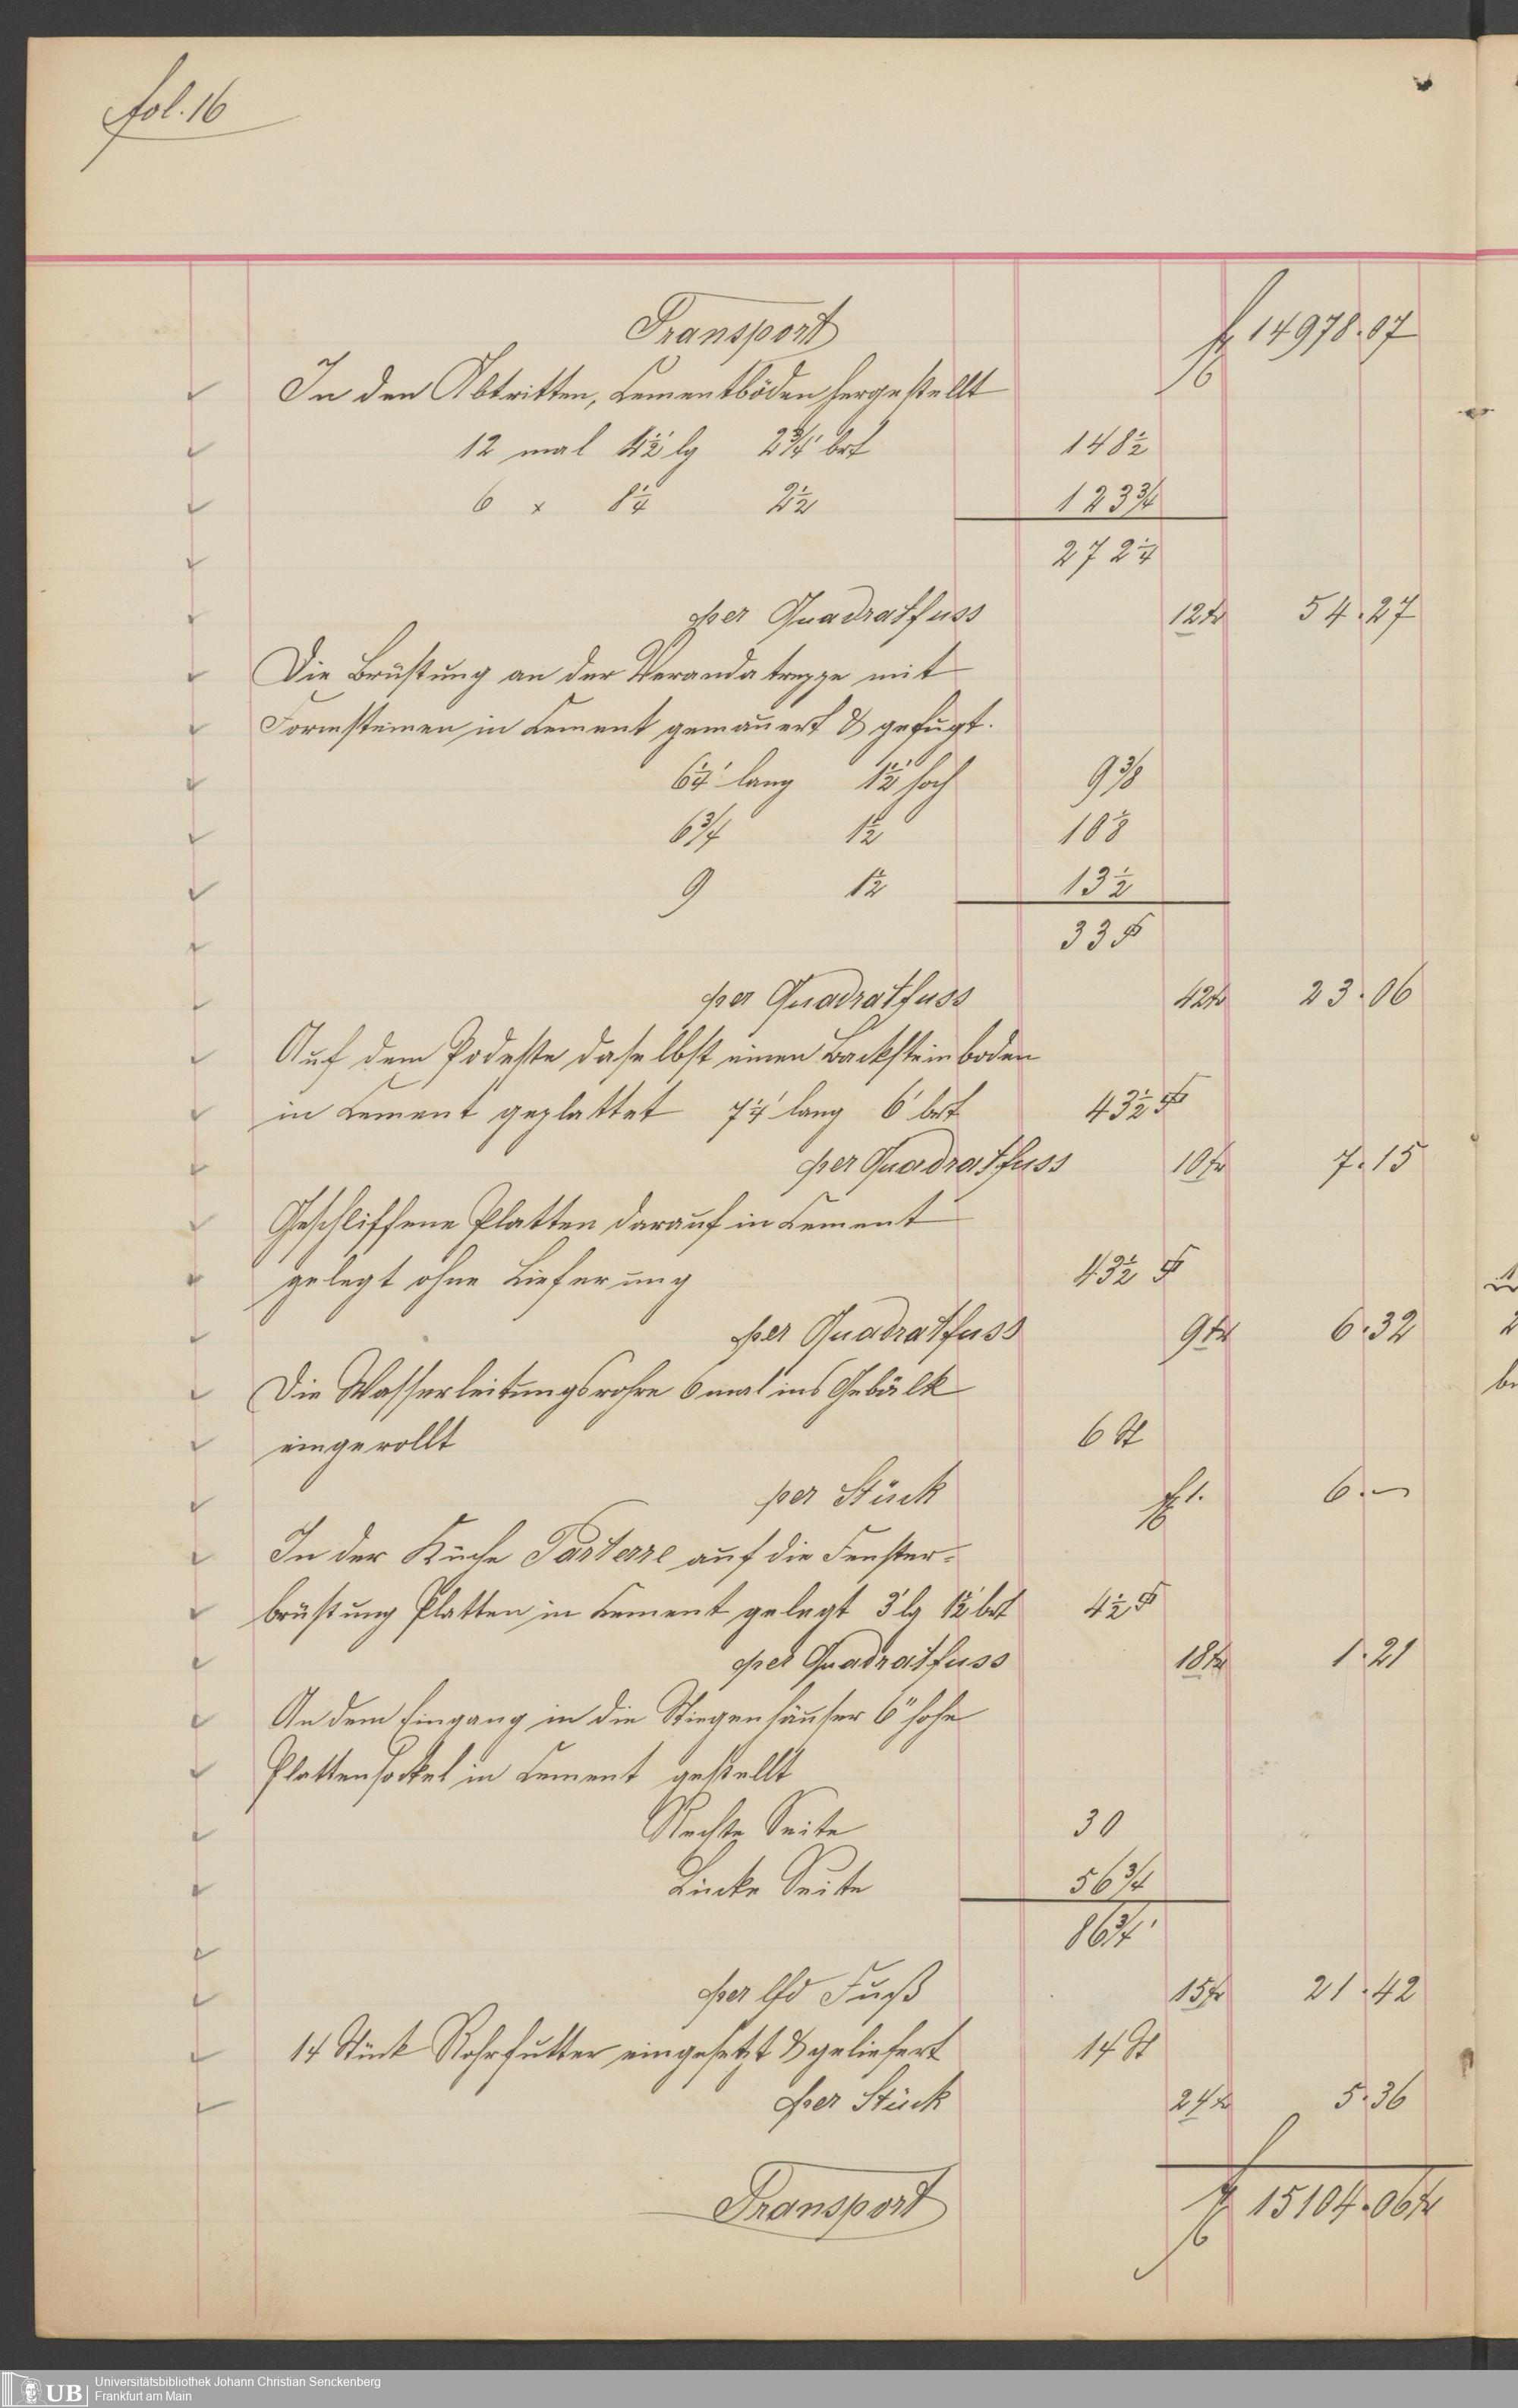 fol. 16
Transport f 14978.07
In den Abtritten, Cementböden hergestellt
12 mal 4½' lg 2¾' brt 148½
6 x 8¼ 2½ 123¾
272¼
per Quadratfuss 12 kr 54.27
Die Brüstung an der Verandatreppe mit
Formsteinen in Cement gemauert & gefugt.
6¼' lang 1½' hoch 9⅜
6¾ 1½ 10⅛
9 1½ 13½
33 □'
per Quadratfuss 42 kr 23.06
Auf dem Podeste daselbst einen Backsteinboden
in Cement geplattet 7¼' lang 6' brt 43½ □'
per Quadratfuss 10 kr 7.15
Geschliffene Platten darauf in Cement
gelegt ohne Lieferung 43½ □'
per Quadratfuss 9 kr 6.32
Die Wasserleitungsrohre 6 mal ins Gebälk
eingerollt 6 St
per Stück f 1. 6.—
In der Küche Parterre auf die Fenster-
brüstung Platten in Cement gelegt 3' lg 1½' brt 4½ □'
per Quadratfuss 18 kr 1.21
An dem Eingang in die Stiegenhäuser 6" hohe
Plattensockel in Cement gestellt
Rechte Seite 30
Linke Seite 56¾
86¾'
per lfd Fuß 15 kr 21.42
14 Stück Rohrfutter eingesetzt & geliefert 14 St
per Stück 24 kr 5.36
Transport f 15104.06 kr
UB
Universitätsbibliothek Johann Christian Senckenberg
Frankfurt am Main